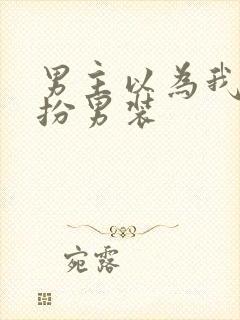 男主以为我
扮男装
宛露